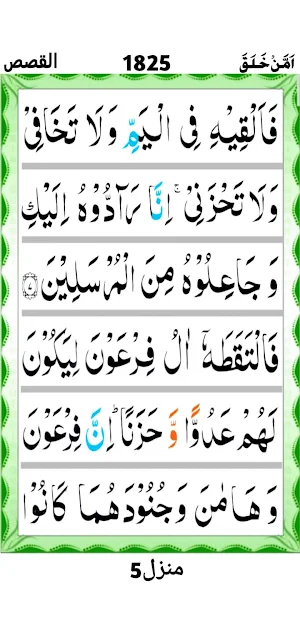 اَمَّنْ خَلَقَ 1825 القصص
فَاَلْقِيْهِ فِى الْيَمِّ وَلَا تَخَافِىْ
وَلَا تَحْزَنِىْ ۚ اِنَّا رَآدُّوْهُ اِلَيْكِ
وَ جَاعِلُوْهُ مِنَ الْمُرْسَلِيْنَ ﴿۷﴾
فَالْتَقَطَهٗۤ اٰلُ فِرْعَوْنَ لِيَكُوْنَ
لَهُمْ عَدُوًّا وَّ حَزَنًا ؕ اِنَّ فِرْعَوْنَ
وَ هَامٰنَ وَ جُنُوْدَهُمَا كَانُوْا
منزل5